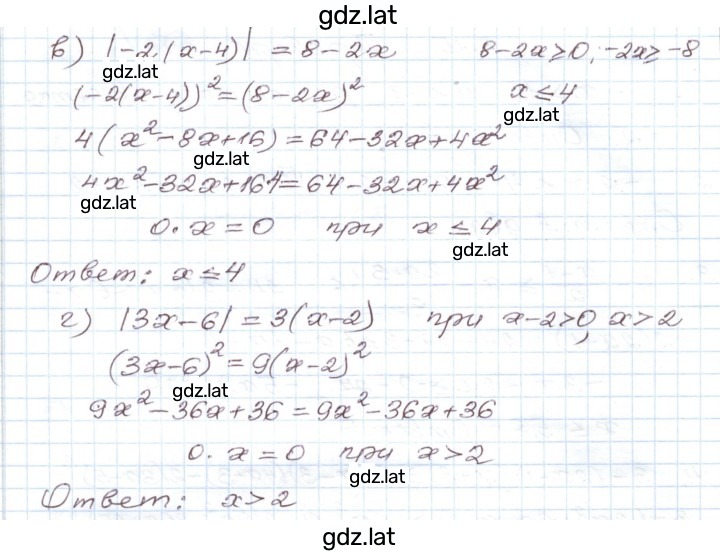 gdz.lat
в) |-2(x-4)| = 8-2x 8-2x≥0; -2x≥-8
gdz.lat
(-2(x-4))² = (8-2x)² x≤4
gdz.lat
4(x²-8x+16) = 64-32x+4x²
gdz.lat
4x²-32x+164= 64-32x+4x²
gdz.lat
0·x=0 при x≤4
gdz.lat
Ответ: x≤4
г) |3x-6| = 3(x-2) при x-2>0, x>2
(3x-6)² = 9(x-2)²
gdz.lat
9x²-36x+36 = 9x²-36x+36
0·x=0 при x>2
gdz.lat
Ответ: x>2
gdz.lat